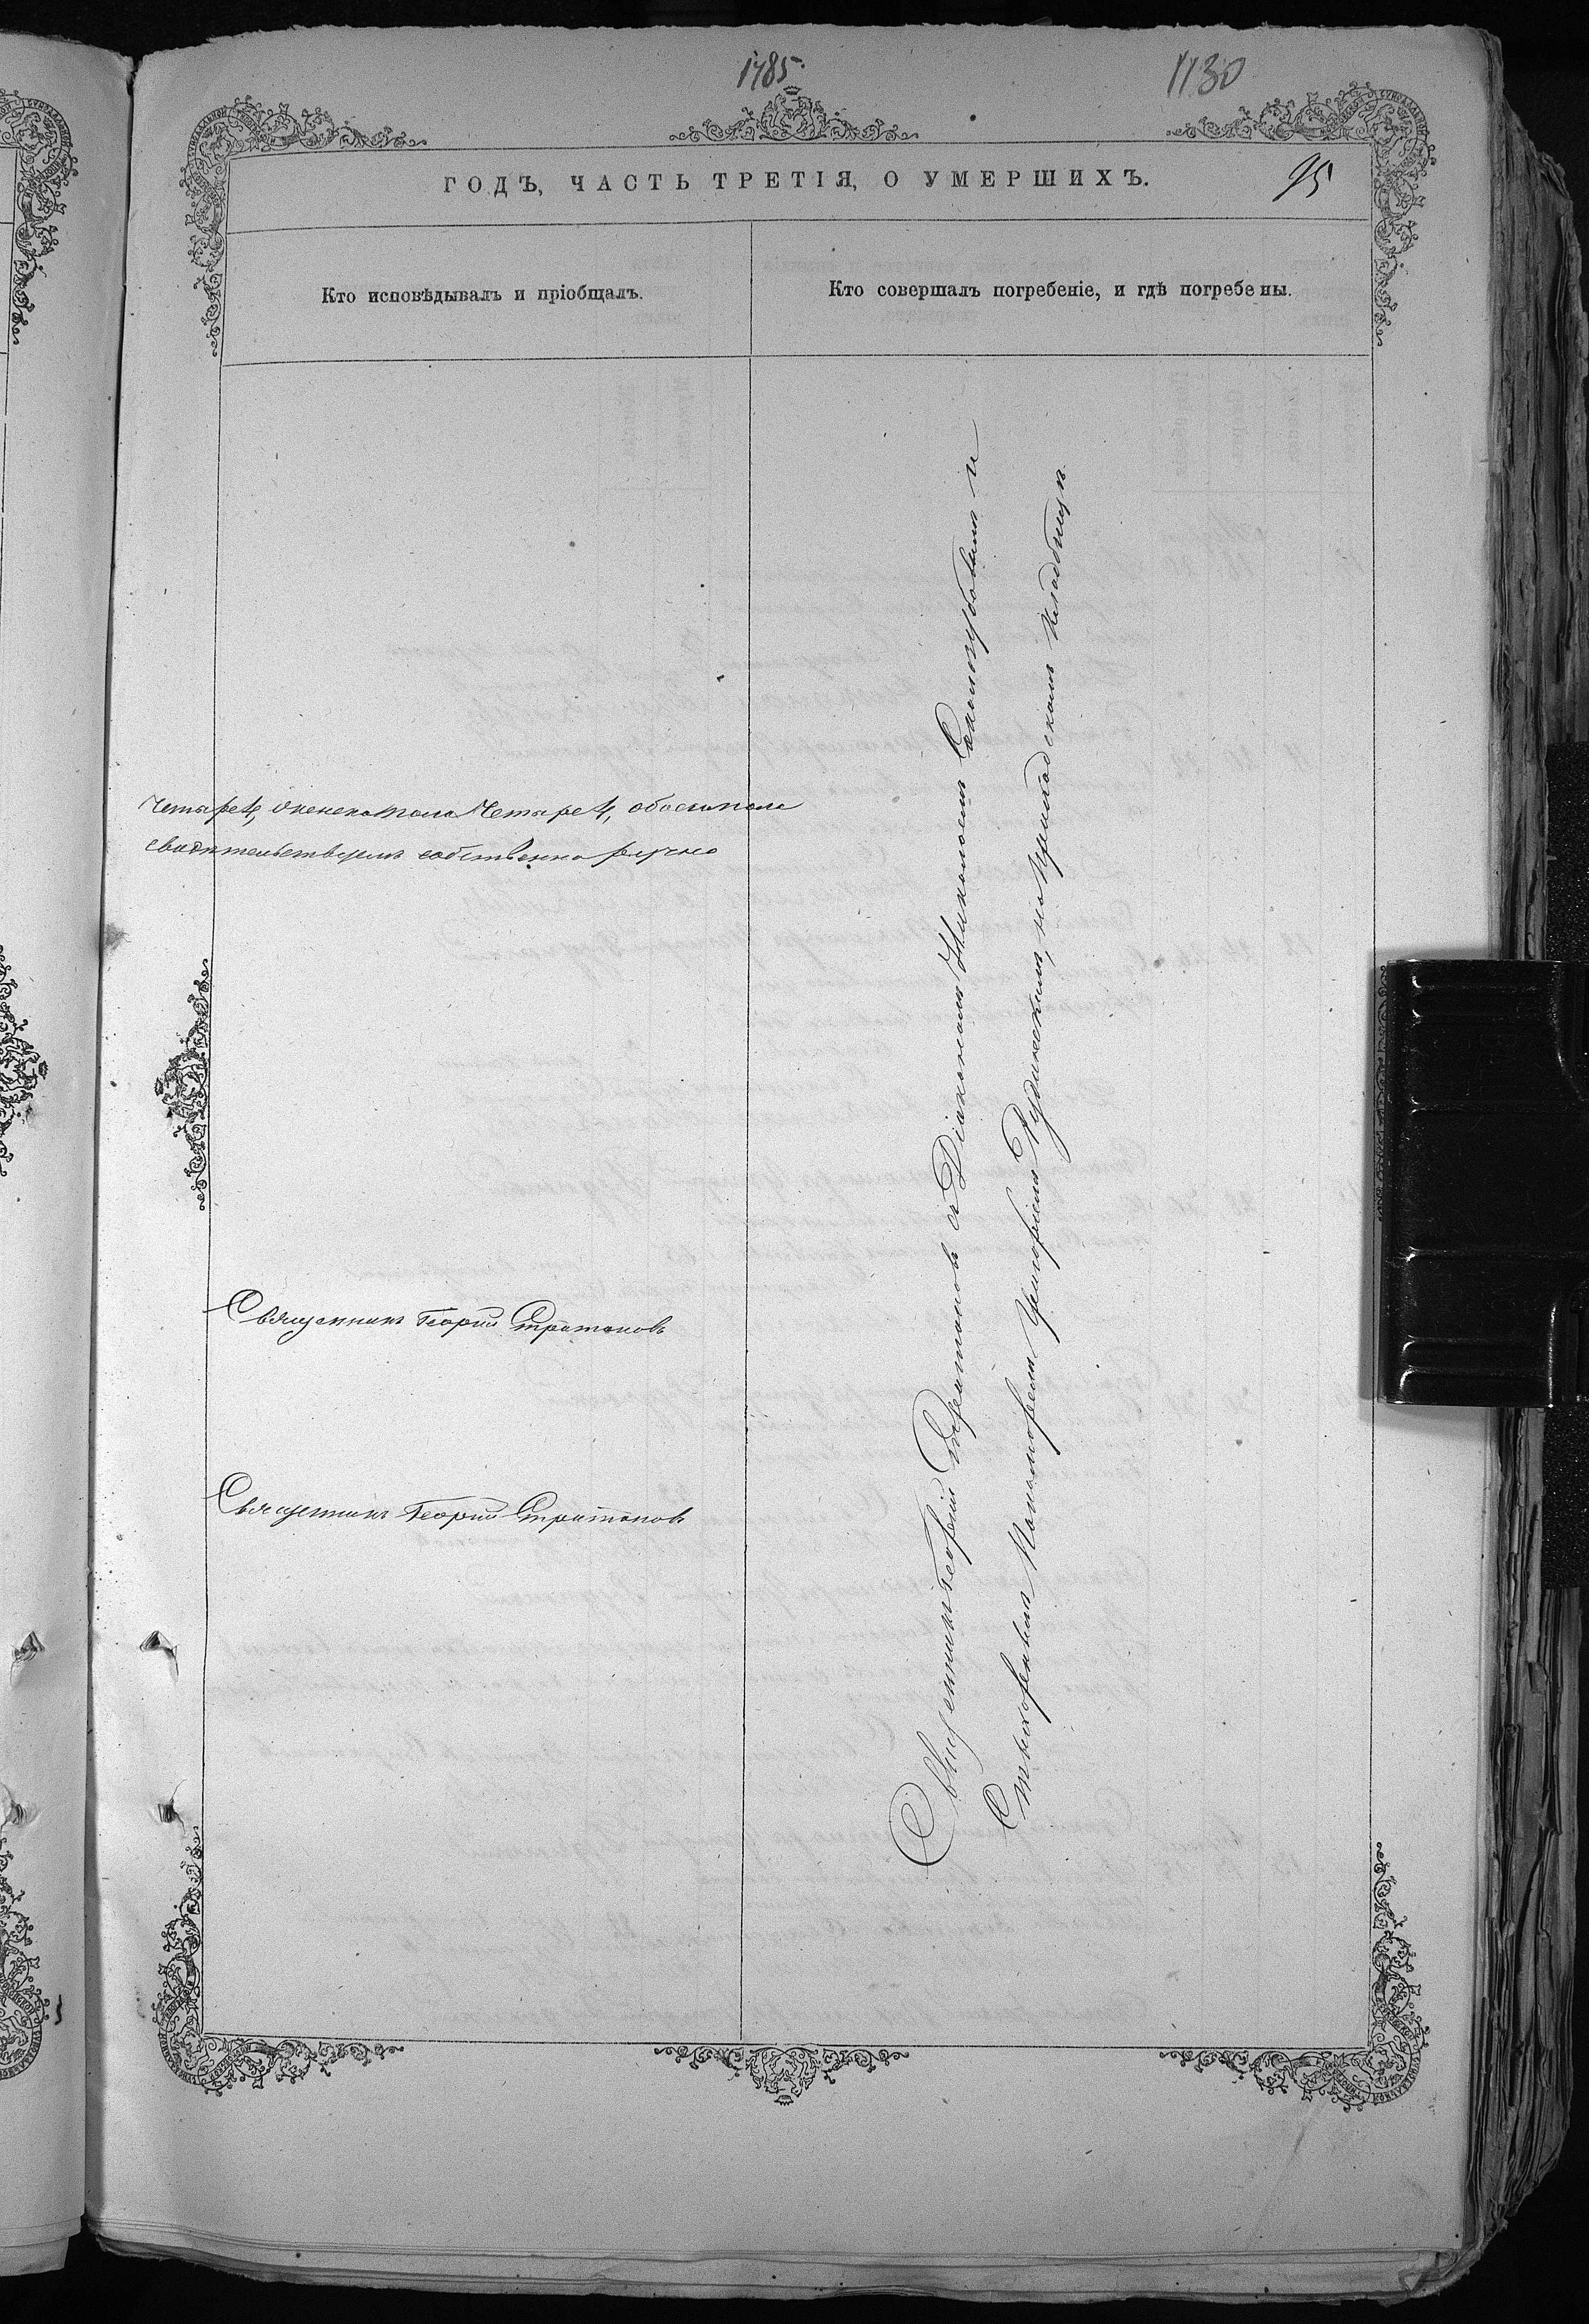 1785.
1130
ГОДЪ, ЧАСТЬ ТРЕТІЯ, О УМЕРШИХЪ.
95
Кто исповѣдывалъ и пріобщалъ.
Кто совершалъ погребеніе, и гдѣ погребены.
Четыре, женска пола Четыре, обоего пола
свидѣтельствуемъ собственноручно
Священникъ Георгій Стратоновъ
Священникъ Георгій Стратоновъ
Священникъ Георгій Стратоновъ съ Діакономъ Николаемъ и
Пономаремъ Григоріемъ Рудинскимъ, на Приходскомъ кладбищѣ